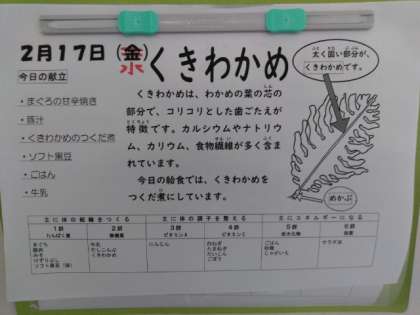 2月17日(金)くきわかめ
水
太く固い部分が、
くきわかめです。
今日の献立
・まぐろの甘辛焼き
・豚汁
・くきわかめのつくだ煮
・ソフト黒豆
・ごはん
・牛乳
くきわかめは、わかめの葉の芯の
部分で、コリコリとした歯ごたえが
特徴です。カルシウムやナトリウ
ム、カリウム、食物繊維が多く含ま
れています。
今日の給食では、くきわかめを
つくだ煮にしています。
めかぶ
主に体の組織をつくる 主に体の調子を整える 主にエネルギーになる
1群 2群 3群 4群 5群 6群
たんぱく質 無機質 ビタミンA ビタミンC 炭水化物 脂質
まぐろ 牛乳 にんじん 白ねぎ ごはん サラダ油
豚肉 たまねぎ 砂糖
みそ くきわかめ だいこん じゃがいも
けずりぶし ごぼう